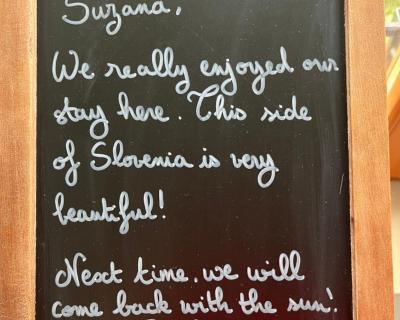 Suzana,
We really enjoyed our
stay here. This side
of Slovenia is very
beautiful!
Next time, we will
come back with the sun!